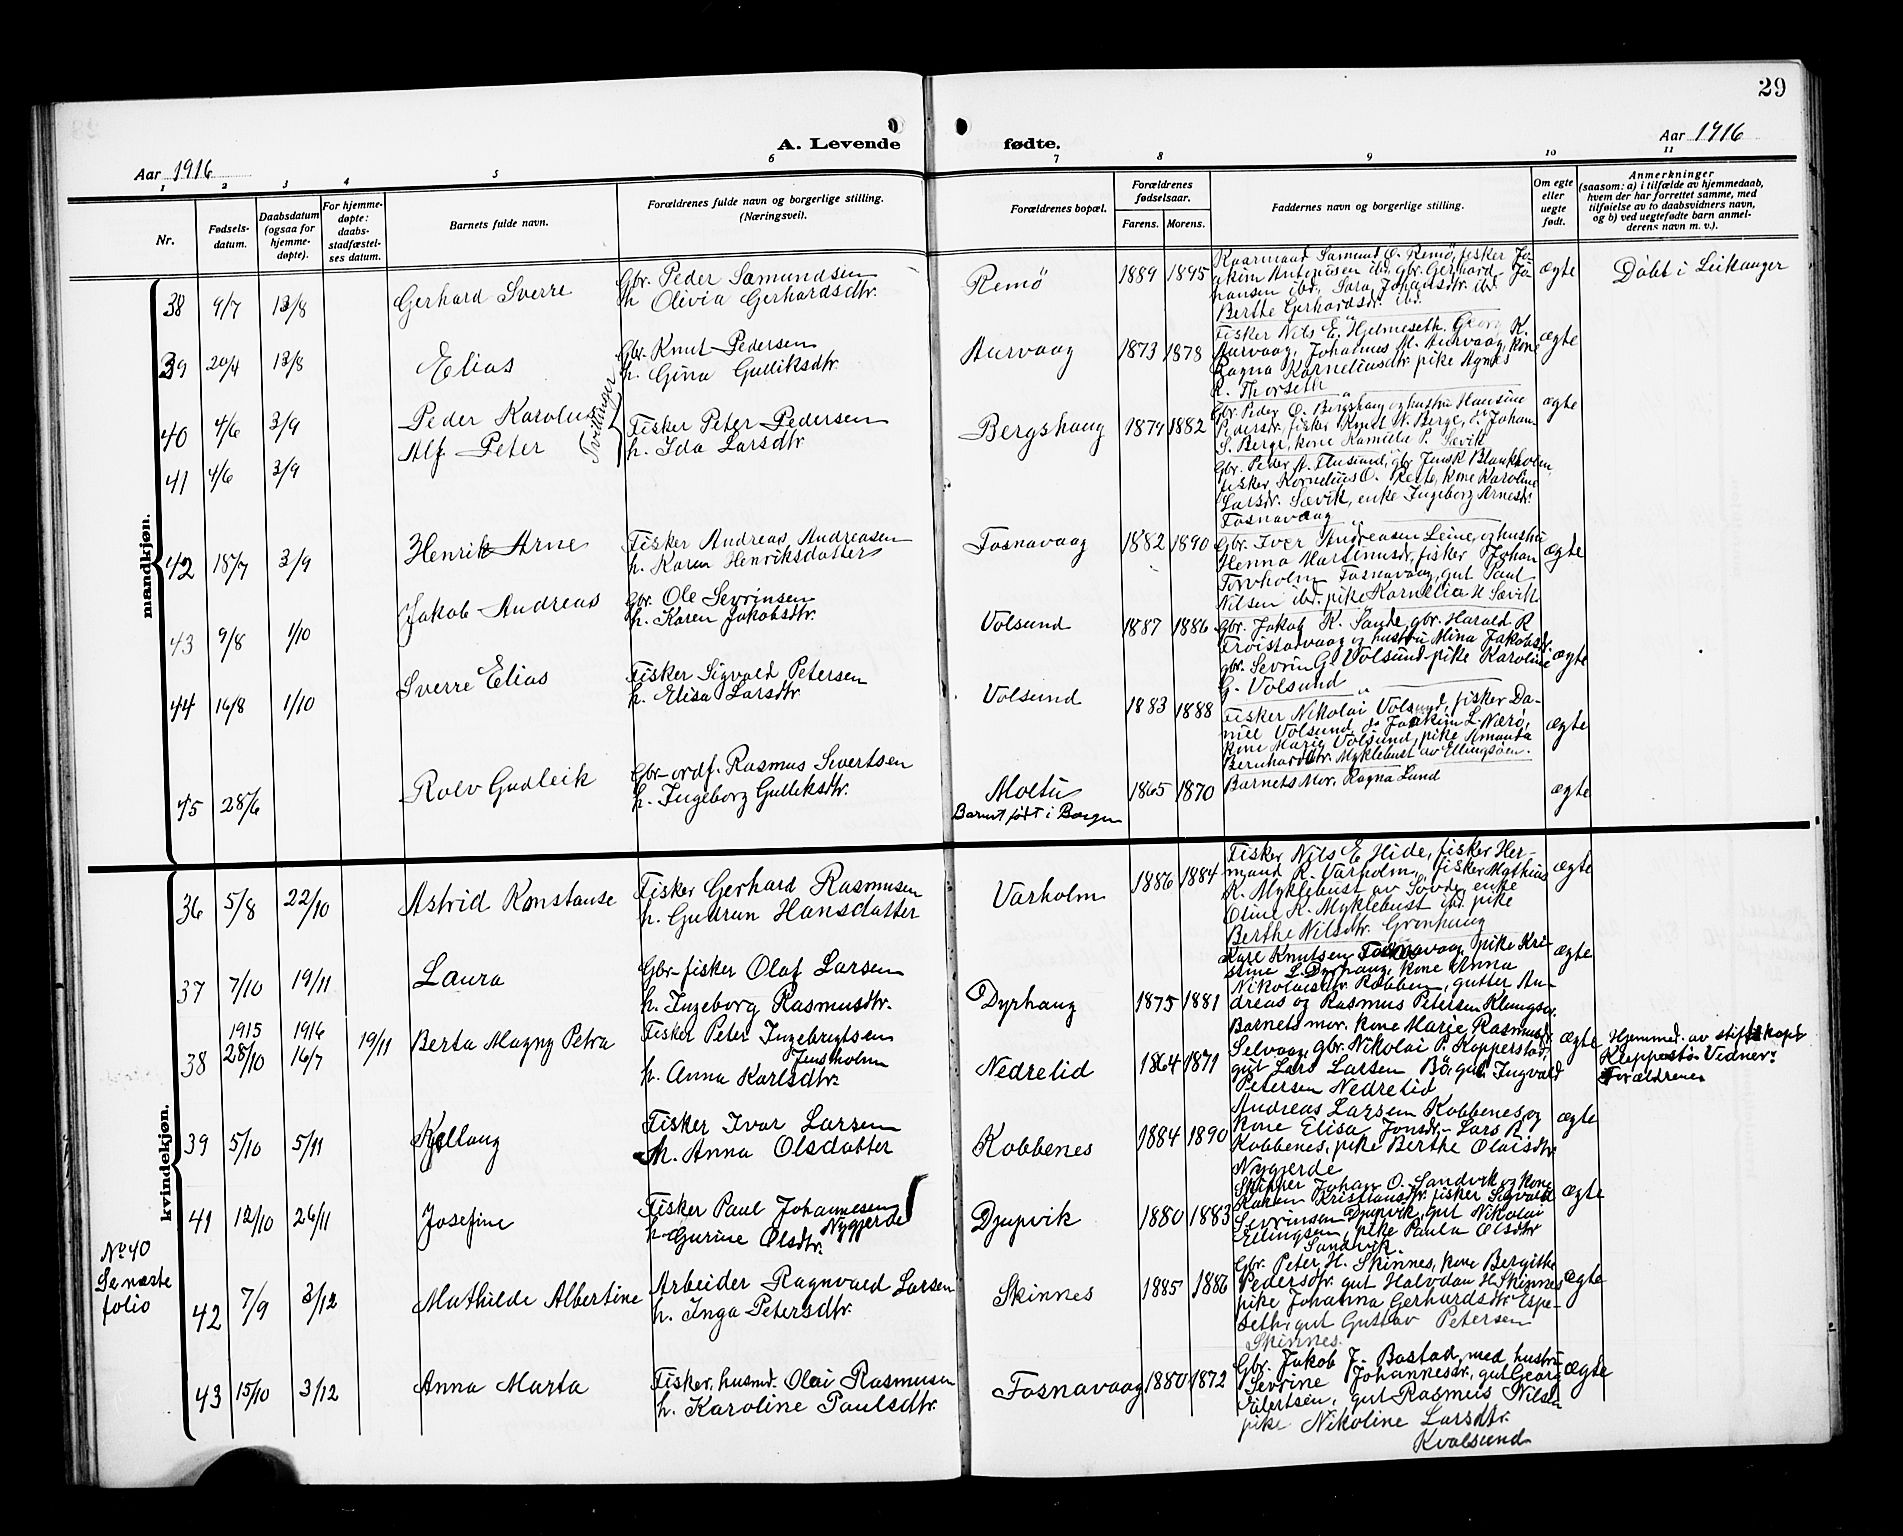 29
A. Levende fødte.
Aar 1916
Aar 1916
1 2 3 4 5 6 7 8 9 10 11
Nr.
Fødsels-
datum.
Daabsdatum
(ogsaa for
hjemme-
døpte).
For hjemme-
døpte:
daabs-
stadfæstel-
ses datum.
Barnets fulde navn.
Forældrenes fulde navn og borgerlige stilling.
(Næringsvei).
Forældrenes bopæl.
Forældrenes
fødselsaar.
Farens. Morens.
Faddernes navn og borgerlige stilling.
Om egte
eller
uegte
født.
Anmerkninger
(saasom: a) i tilfælde av hjemmedaab,
hvem der har forrettet samme, med
tilføielse av to daabsvidners navn,
og b) ved uegtefødte barn anmel-
derens navn m. v.).
mandkjøn.
38 9/7 13/8 Gerhard Sverre
Gbr. Peder Samundsen
h Olivia Gerhardsdtr.
Remö 1889 1895
Kaarmand Samund O. Remö, fisker Jo-
akim Anteniusen ibd, gbr. Gerhard Jo-
hansen ibd, Sara Johansdtr. ibd.
Berthe Gerhardsdr. ibd.
ægte
Döbt i Leikanger
39 20/4 13/8 Elias
Gbr. Knut Pedersen
h. Gina Gulliksdtr.
Aurvaag 1873 1878
Fisker Nils E. Hjelmeseth. Georg K.
Aurvaag, Johannes M. Aurvaag, kone
Ragna Korneliusdtr pike Agnes
R. Thorseth
ægte
40 4/6 3/9 Peder Karolus
41 4/6 3/9 Alf Peter
Tvillinger
Fisker Peter Pedersen
h. Ida Larsdtr
Bergshaug 1879 1882
Gbr. Peder O. Bergshaug og hustru Hansine
Pedersdr, fisker Knut N. Berge, do Johan
S. Berge, kone Kamilla P. Sævik
Gbr. Peder A. Flusund, gbr Jensk Blankholm,
fisker Kornelius O. Rette, kone Karoline
Larsdr. Sævik, enke Ingeborg Arnesdr
Fosnavaag
ægte
42 18/7 3/9 Henrik Arne
Fisker Andreas Andreasen
h. Karen Henriksdatter
Fosnavaag 1882 1890
Gbr. Iver Andreasen Leine, og hustru
Henna Martinusdr, fisker Johan
Torvholm Fosnavaag, gut Paul
Nilsen ibd. pike Kornelia H Sævik
ægte
43 9/8 1/10 Jakob Andreas
Gbr. Ole Sevrinsen
h. Karen Jakobsdtr.
Volsund 1887 1886
Gbr. Jakob K. Sande, gbr. Harald R
Fröistadvaag og hustru Alina Jakobsdr.
gbr. Sevrin G. Volsund pike Karoline
G. Volsund
ægte
44 16/8 1/10 Sverre Elias
Fisker Sigvald Petersen
h. Elisa Larsdtr
Volsund 1883 1888
Fisker Nikolai Volsund, fisker Da-
niel Volsund do Joakim L. Nærø,
kone Marie Volsund, pike Amanda
Bernhardsdtr. Myklebust av Ellingsöen.
ægte
45 28/6 Rolv Gudleik
Gbr-ordf. Rasmus Sivertsen
h. Ingeborg Gulliksdtr.
Moltu
Barnet født i Bergen
1865 1870
Barnets Mor, Ragna Lund
ægte
kvindekjøn.
36 5/8 22/10 Astrid Konstanse
Fisker Gerhard Rasmusen
h. Gudrun Hansdatter
Varholm 1886 1884
Fisker Nils E Hide, fisker Her-
mand R. Varholm, fisker Mathias
K. Myklebust av Sövde, enke
Oline K. Myklebust ibd. pike
Berthe Nilsdtr. Grönhaug
ægte
37 7/10 19/11 Laura
Gbr-fisker Olaf Larsen
h. Ingeborg Rasmusdtr.
Dyrhaug 1875 1881
Karl Knutsen Fosnavaag pike Kri-
stine L Dyrhaug, kone Anna
Nikolaisdtr. Kobben, gutter An-
dreas og Rasmus Petersen Klungsør.
ægte
38 1915 28/10 1916 16/7 19/11 Berta Magny Petra
Fisker Peter Ingebrigtsen
Jensholm
h. Anna Karlsdtr.
Nedrelid 1864 1871
Barnets mor. kone Marie Rasmusdr
Selvaag, gbr. Nikolai P. Kopperstad,
gut Lars Larsen Bö, gut Ingvald
Petersen Nedrelid
ægte
Hjemmed. av stiftskapl
Kleppestø. Vidner:
Forældrene
39 5/10 5/11 Kjellaug
Fisker Ivar Larsen
h. Anna Olsdatter
Kobbenes 1884 1890
Andreas Larsen Kobbenes og
kone Elisa Jonsdr. Lars A
Kobbenes, pike Berthe Olaisdtr
Nygjerde
ægte
41 12/10 26/11 Josefine
Fisker Paul Johannesen
Nygjerde
h. Gurine Olsdtr.
Djupvik 1880 1883
Skipper Johan O. Sandvik og kone
Karen Kristiansdtr. fisker Sigvald
Sevrinsen Djupvik, gut Nikolai
Ellingsen, pike Paula Olsdtr
Sandvik.
ægte
No 40
Se næste
folio
42 7/9 3/12 Mathilde Albertine
Arbeider Ragnvald Larsen
h. Inga Petersdtr.
Skinnes 1885 1886
Gbr. Peter H. Skinnes, kone Bergitte
Pedersdtr. gut Halvdan H. Skinnes
pike Johanna Gerhardsdtr Espe-
seth, gut Gustav Petersen
Skinnes.
ægte
43 15/10 3/12 Anna Marta
Fisker, husmd. Olai Rasmusen
h. Karoline Paulsdtr.
Fosnavaag 1880 1872
Gbr. Jakob J. Bostad med hustru
Sevrine Johannesdr., gut Georg
Vilertsen, gut Rasmus Nilsen
pike Nikoline Larsdtr.
Kvalsund
ægte